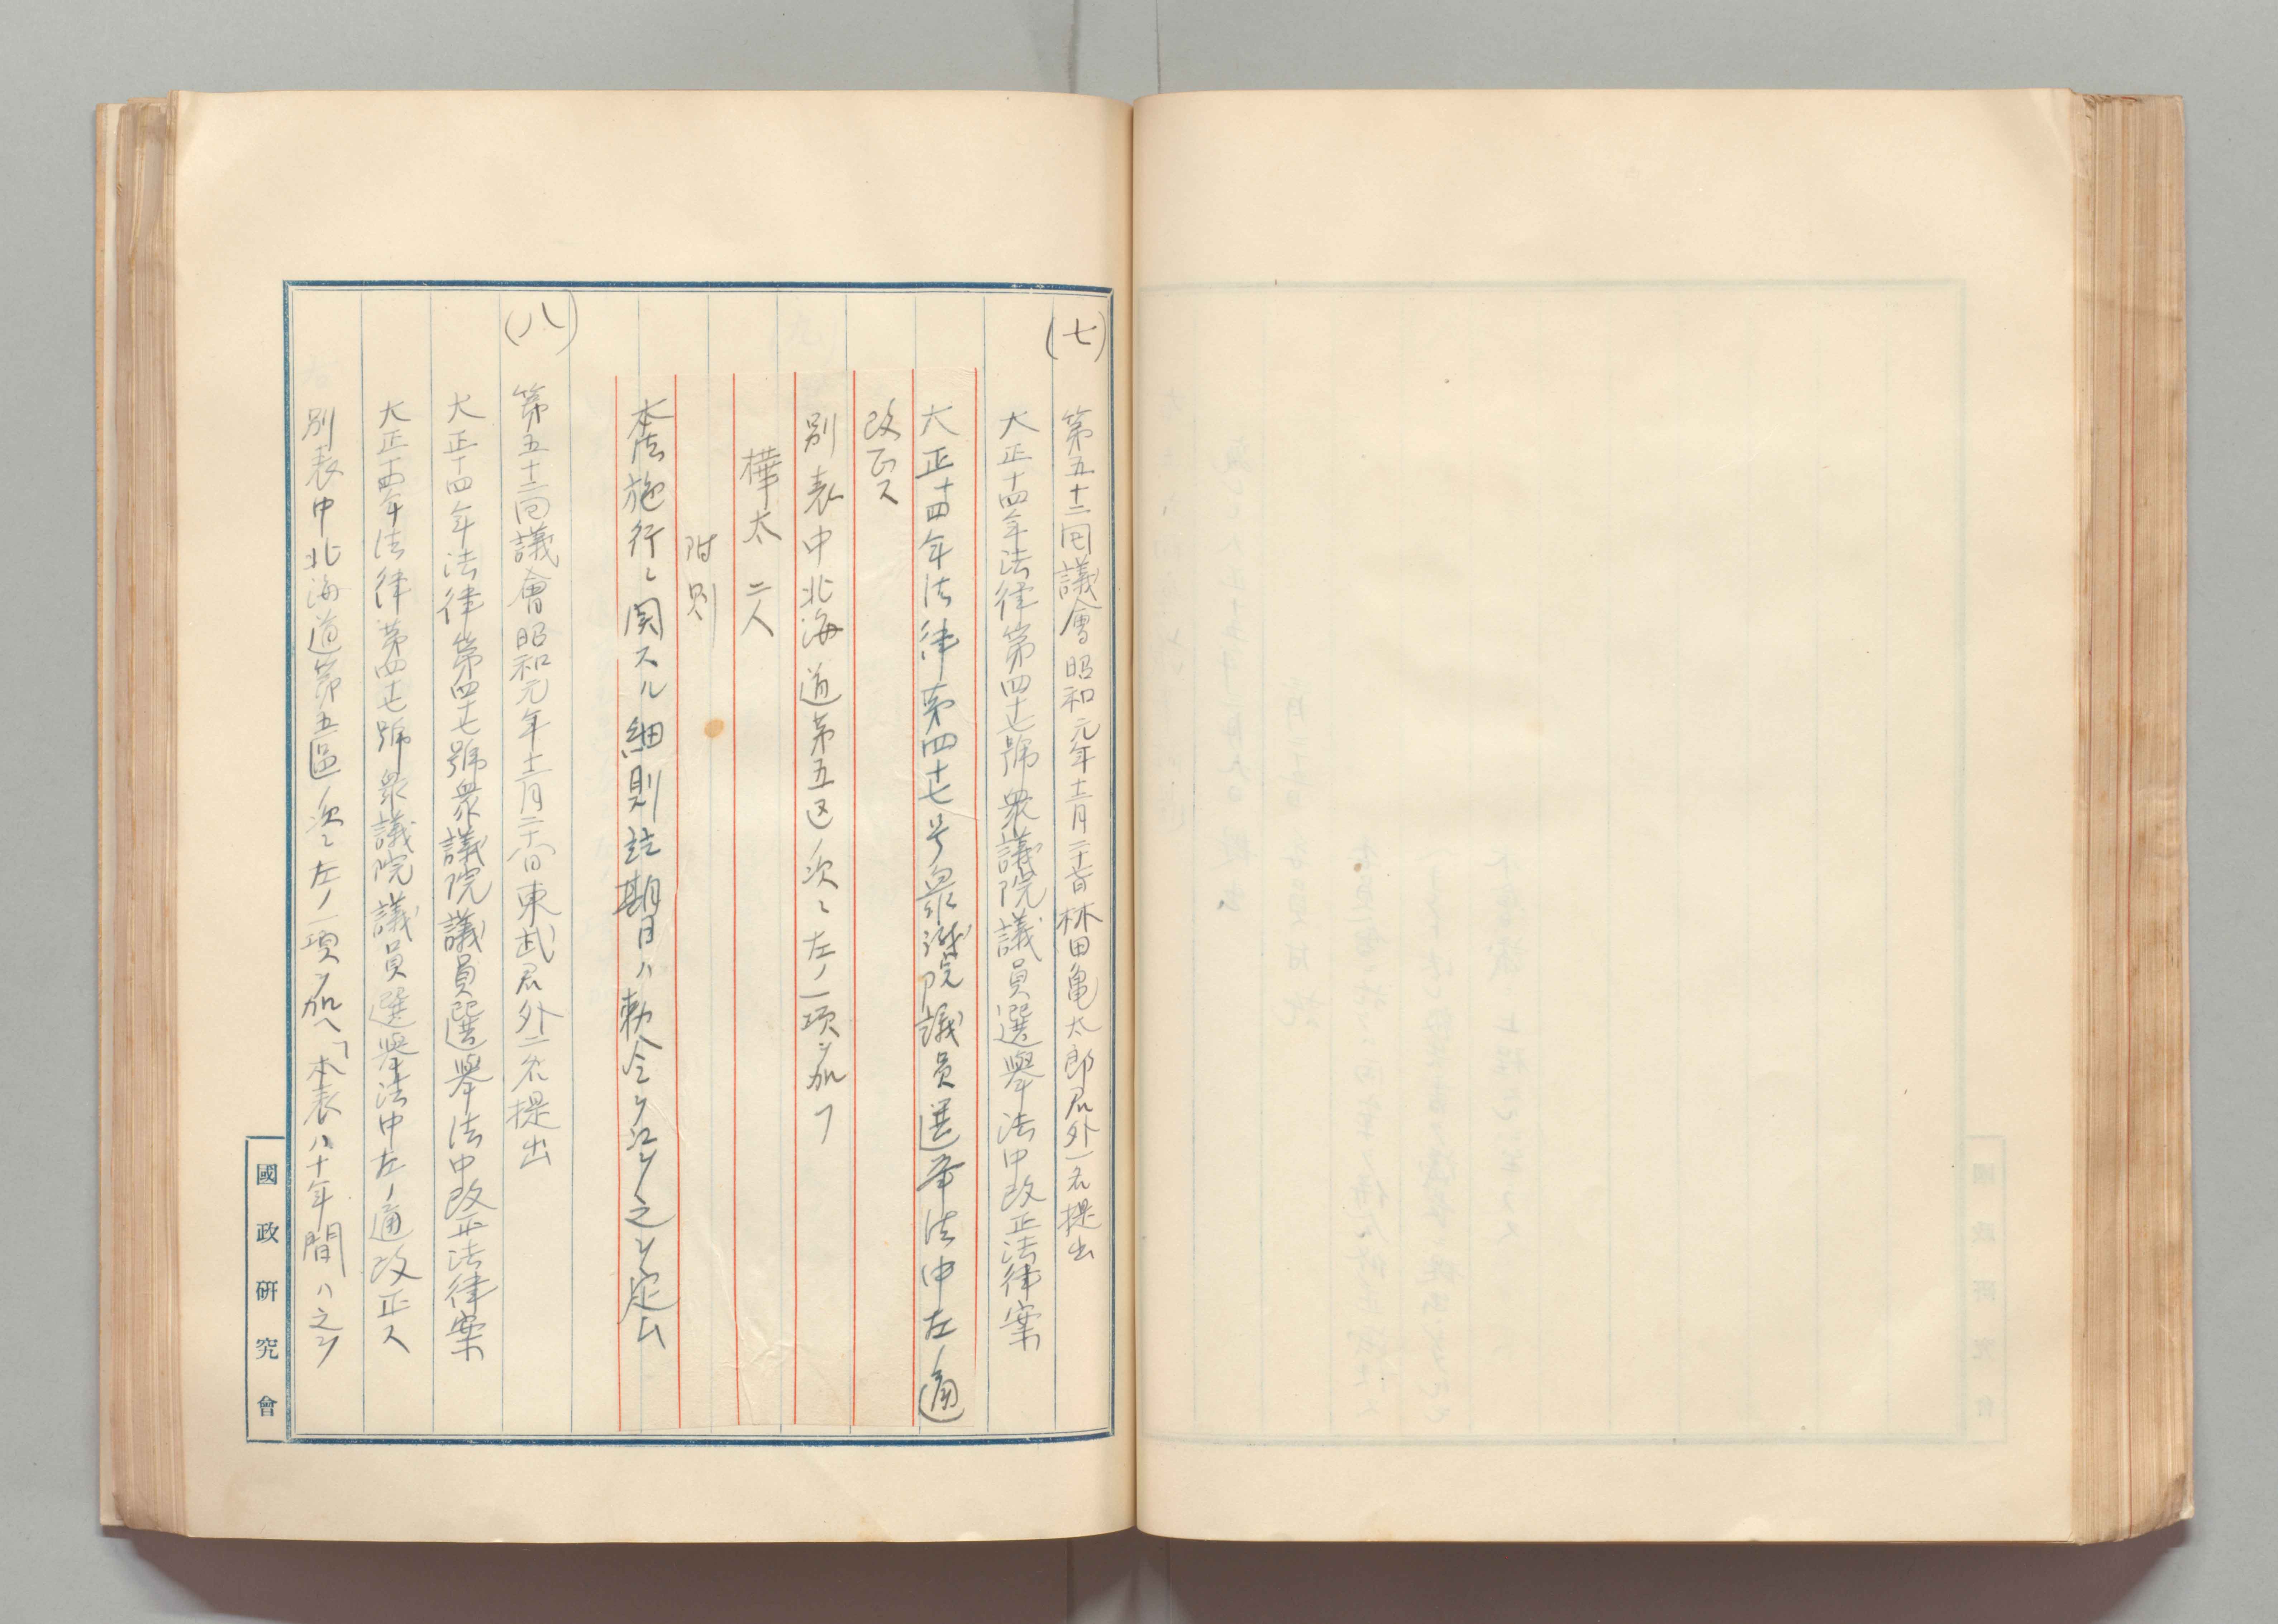 (七)
第五十二回議會昭和元年十二月二十六日林田亀太郎君外一名提出
大正十四年法律第四十七號衆議院議員選擧法中改正法律案
大正十四年法律第四十七号衆議院議員選挙法中左ノ通
改正ス
別表中北海道第五区ノ次ニ左ノ一項ヲ加フ
樺太 二人
附則
本法施行ニ関スル細則竝期日ハ勅令ヲ以ツテ之ヲ定ム
(八)
第五十二回議會昭和元年十二月二十八日東武君外二名提出
大正十四年法律第四十七號衆議院議員選擧法中改正法律案
大正十四年法律第四十七號衆議院議員選擧法中左ノ通改正ス
別表中北海道第五區ノ次ニ左ノ一項ヲ加ヘ「本表ハ十年間ハ之ヲ
國政研究會